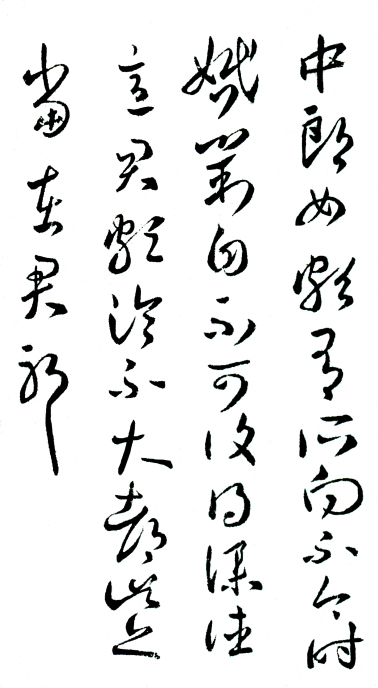 中郎女頗有所向不今時
婚對自不可復得僕往
意君頗論不大都此亦
當在君邪